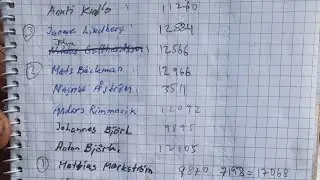 Antti Kallo 11260
③ Janne Lindberg 12884
Gotthardsson 12566
② Mats Bäckman 12966
Magnus Åström 3511
Anders Rimmavik 12092
Johannes Björk 9895
Anton Björk 12105
① Mattias Markström 9870 7198 = 17068